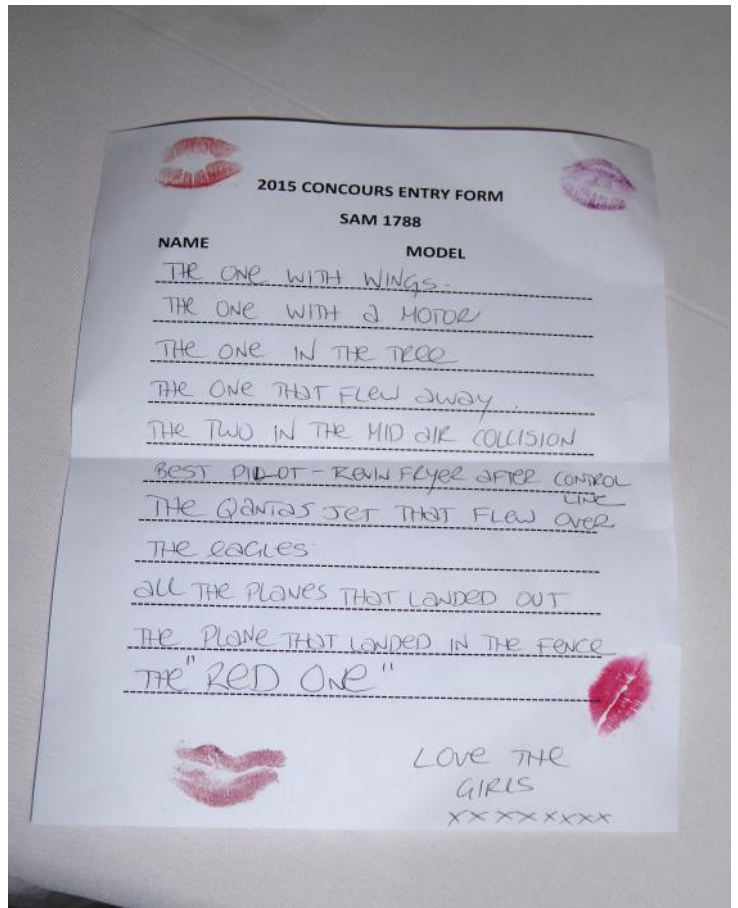 2015 CONCOURS ENTRY FORM
SAM 1788
NAME MODEL
THE ONE WITH WINGS.
THE ONE WITH a MOTOR
THE ONE IN THE TREE
THE ONE THAT FLEW away.
THE TWO IN THE MID aIR COLLISION
BEST PILOT - KEVIN FRYER aFTER CONTROL
LINE
THE QaNTas JET THAT FLEW OVER
THE eaGLES
aLL THE PLaNES THaT LaNDED OUT
THE PLaNE THaT LaNDED IN THE FENCE
THE "RED ONE"
LOVE THE
GIRLS
XXXXXXXX